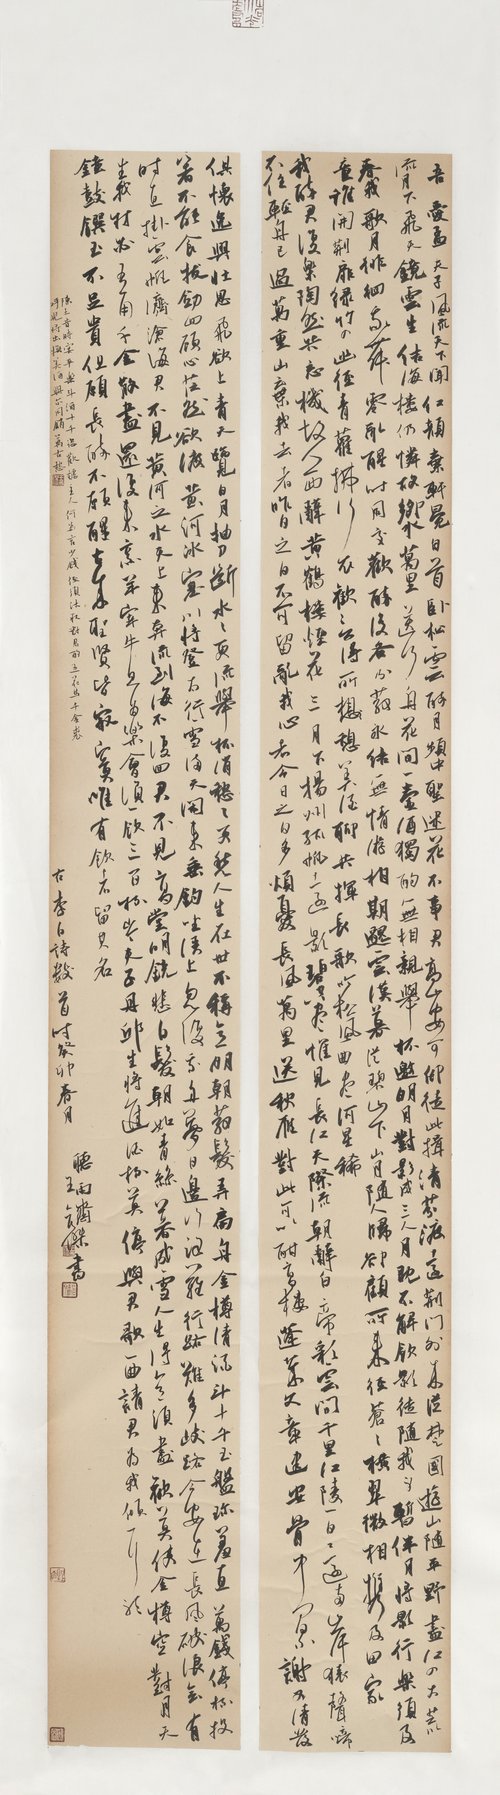 吾愛孟夫子風流天下聞紅顏棄軒冕白首臥松雲醉月頻中聖迷花不事君高山安可仰徒此揖清芬渡遠荊門外來從楚國遊山隨平野盡江入大荒
流月下飛天鏡雲生結海樓仍憐故鄉水萬里送行舟花間一壺酒獨酌無相親舉杯邀明月對影成三人月既不解飲影徒隨我身暫伴月將影行樂須及
春我歌月徘徊我舞零亂醒時同交歡醉後各分散永結無情遊相期邈雲漢暮從碧山下山月隨人歸卻顧所來徑蒼々橫翠微相攜及田家
童稚開荊扉綠竹入幽徑青蘿拂行衣歡言得所憩美酒聊共揮長歌吟松風曲盡河星稀
我醉君復樂陶然共忘機故人西辭黃鶴樓煙花三月下揚州孤帆遠影碧空盡惟見長江天際流朝辭白帝彩雲間千里江陵一日還兩岸猿聲啼
不住輕舟已過萬重山棄我去者昨日之日不可留亂我心者今日之日多煩憂長風萬里送秋雁對此可以酣高樓蓬萊文章建安骨中間小謝又清發
俱懷逸興壯思飛欲上青天覽日月抽刀斷水水更流舉杯消愁愁更愁人生在世不稱意明朝散髮弄扁舟金樽清酒斗十千玉盤珍羞直萬錢停杯投
箸不能食拔劍四顧心茫然欲渡黃河冰塞川將登太行雪滿天閒來垂釣坐溪上忽復乘舟夢日邊行路難行路難多歧路今安在長風破浪會有
時直掛雲帆濟滄海君不見黃河之水天上來奔流到海不復回君不見高堂明鏡悲白髮朝如青絲暮成雪人生得意須盡歡莫使金樽空對月天
生我材必有用千金散盡還復來烹羊宰牛且為樂會須一飲三百杯岑夫子丹邱生將進酒杯莫停與君歌一曲請君為我傾耳聽
鐘鼓饌玉不足貴但願長醉不願醒古來聖賢皆寂寞唯有飲者留其名
陳王昔時宴平樂斗酒十千恣歡謔主人何為言少錢徑須沽取對君酌五花馬千金裘
呼兒將出換美酒與爾同銷萬古愁
古李白詩數首時癸卯春月
聽雨齋
書